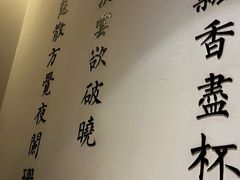 飄香盡杯
雲欲破曉
散方覺夜闌